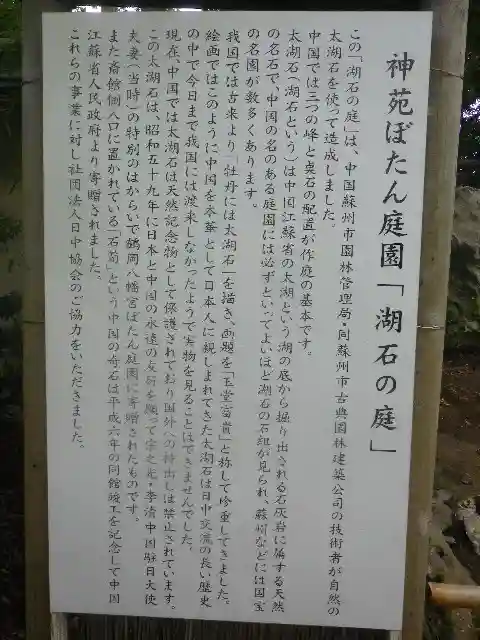 神苑ぼたん庭園「湖石の庭」
この「湖石の庭」は、中国蘇州市園林管理局・同蘇州市古典園林建築公司の技術者が自然の
太湖石を使って造成しました。
中国では三つの峰と奥石の配置が作庭の基本です。
太湖石(湖石という)は中国江蘇省の太湖という湖の底から掘り出される石灰岩に属する天然
の名石で、中国の名のある庭園には必ずといってよいほど湖石の石組が見られ、蘇州などには国宝
の名園が数多くあります。
我国では古来より「牡丹には太湖石」を描き、画題を「玉堂富貴」と称して珍重してきました。
絵画ではこのように中国を本筆として日本人に親しまれてきた太湖石は日中交流の長い歴史
の中で今日まで我国には渡来しなかったようで実物を見ることはできませんでした。
現在、中国では太湖石は天然記念物として保護されており国外への持出しは禁止されています。
この太湖石は、昭和五十九年に日本と中国の永遠の友好を願って宋之光・李清中国駐日大使
夫妻(当時)の特別のはからいで鶴岡八幡宮ぼたん庭園に寄贈されたものです。
また斎館側入口に置かれている「石筍」という中国の奇石は平成六年の同館竣工を記念して中国
江蘇省人民政府より寄贈されました。
これらの事業に対し社団法人日中協会のご協力をいただきました。